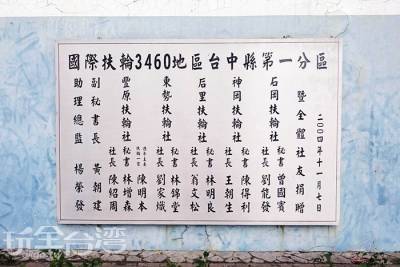 國際扶輪3460地區台中縣第一分區
二○○四年十一月七日
暨全體社友捐贈
石岡扶輪社 秘書 曾國賓
社長 劉能發
神岡扶輪社 秘書 陳得利
社長 王朝生
后里扶輪社 秘書 林明良
社長 翁文松
東勢扶輪社 秘書 林錦堂
社長 劉家熾
豐原扶輪社 陳明本
秘書 林增森
社長 陳紹周
副秘書長 黃朝建
助理總監 楊榮發
玩全台灣